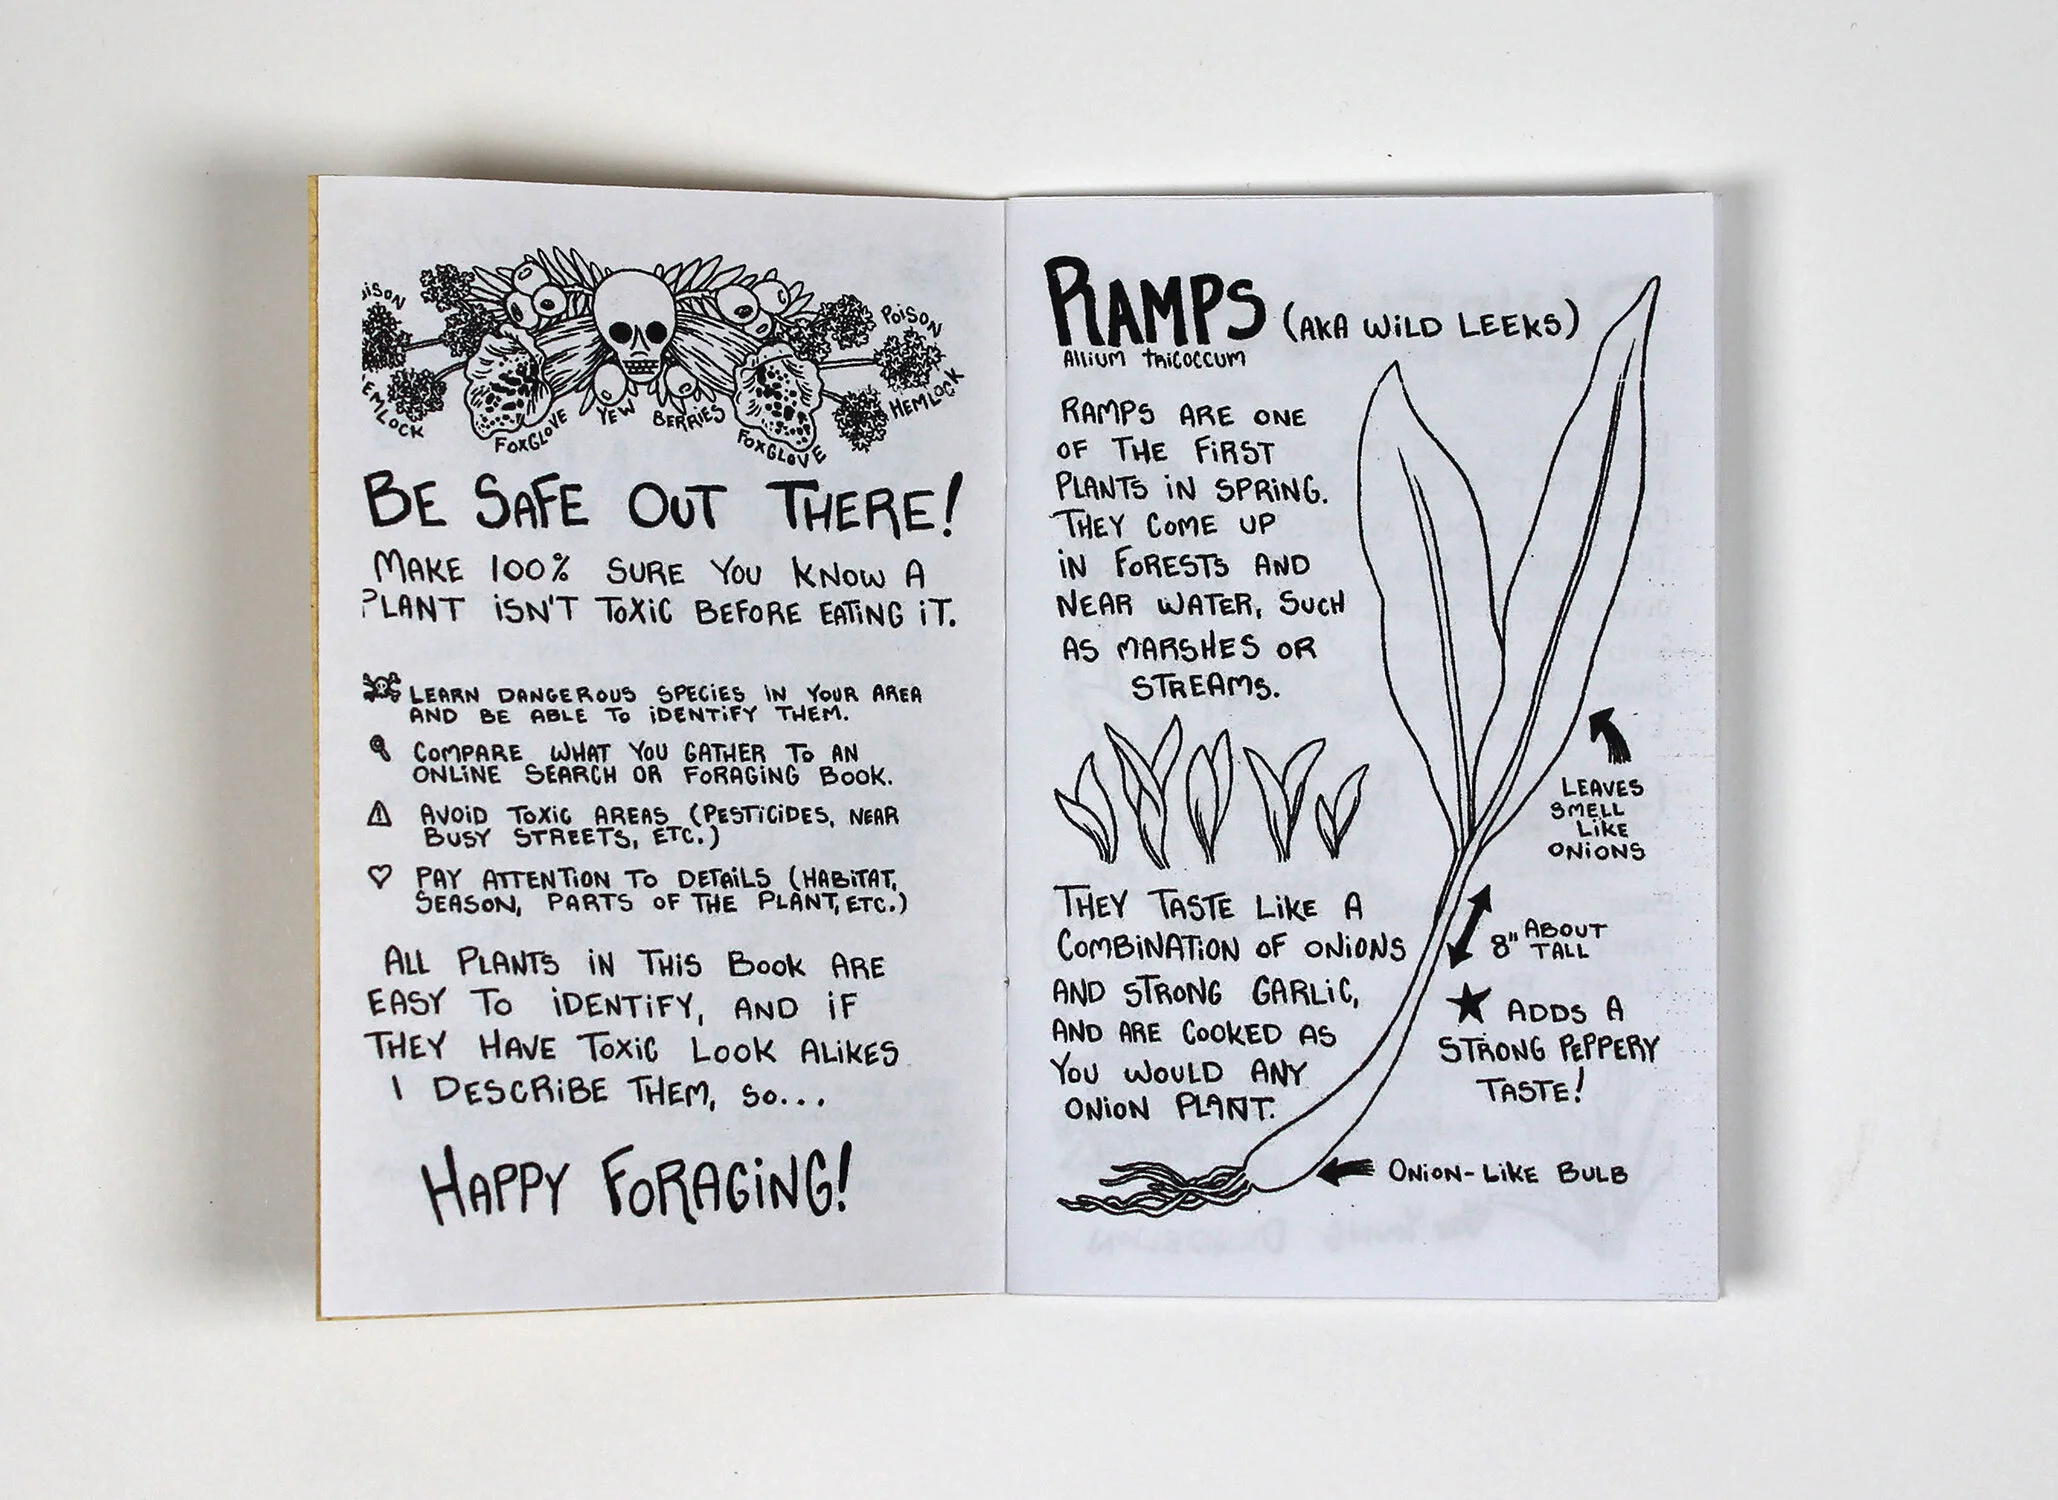 POISON
HEMLOCK
FOXGLOVE
YEW BERRIES
FOXGLOVE
POISON
HEMLOCK
BE SAFE OUT THERE!
MAKE 100% SURE YOU KNOW A
PLANT ISN'T TOXIC BEFORE EATING IT.
LEARN DANGEROUS SPECIES IN YOUR AREA
AND BE ABLE TO IDENTIFY THEM.
COMPARE WHAT YOU GATHER TO AN
ONLINE SEARCH OR FORAGING BOOK.
AVOID TOXIC AREAS (PESTICIDES, NEAR
BUSY STREETS, ETC.)
PAY ATTENTION TO DETAILS (HABITAT,
SEASON, PARTS OF THE PLANT, ETC.)
ALL PLANTS IN THIS BOOK ARE
EASY TO IDENTIFY, AND IF
THEY HAVE TOXIC LOOK ALIKES
I DESCRIBE THEM, SO...
HAPPY FORAGING!
RAMPS (AKA WILD LEEKS)
Allium tricoccum
RAMPS ARE ONE
OF THE FIRST
PLANTS IN SPRING.
THEY COME UP
IN FORESTS AND
NEAR WATER, SUCH
AS MARSHES OR
STREAMS.
LEAVES
SMELL
LIKE
ONIONS
THEY TASTE LIKE A
COMBINATION OF ONIONS
AND STRONG GARLIC,
AND ARE COOKED AS
YOU WOULD ANY
ONION PLANT.
8" ABOUT
TALL
★ ADDS A
STRONG PEPPERY
TASTE!
ONION-LIKE BULB